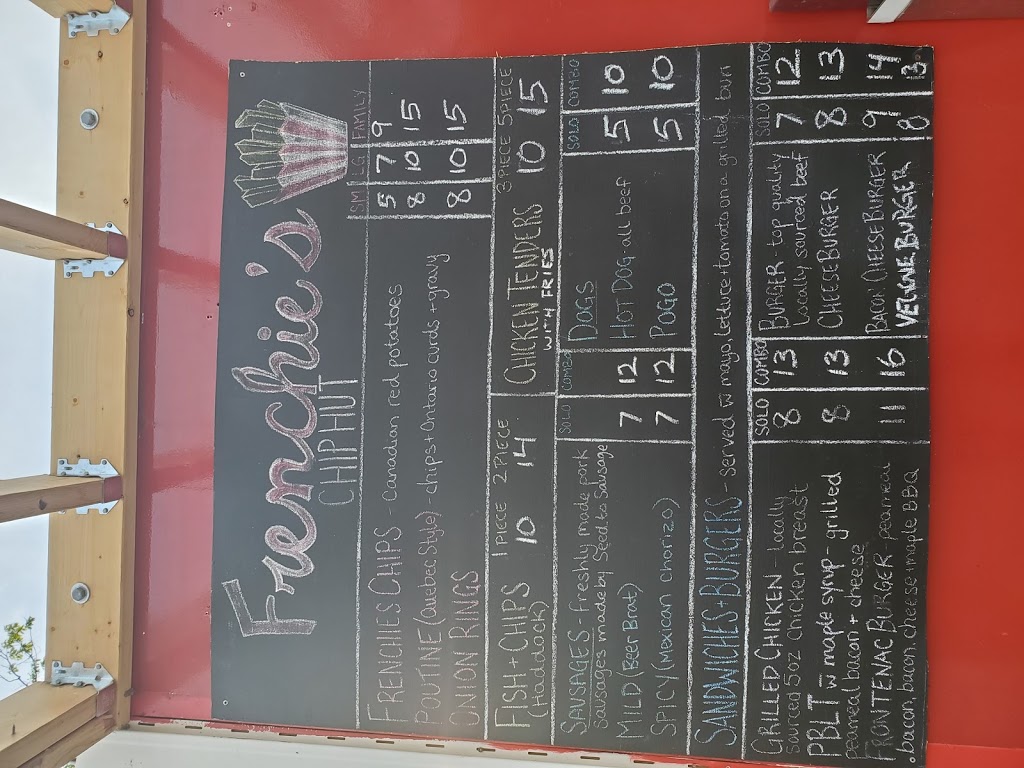 Frenchie's
CHIPHUT
SM LG FAMILY
FRENCHIES CHIPS - Canadian red potatoes 5 7 9
POUTINE (Quebec Style) - chips + Ontario curds + gravy 8 10 15
ONION RINGS 8 10 15
FISH + CHIPS 1 PIECE 2 PIECE
(Haddock) 10 14
CHICKEN TENDERS 3 PIECE 5 PIECE
WITH FRIES 10 15
SAUSAGES - freshly made pork SOLO COMBO
sausages made by Seed to Sausage
MILD (Beer Brat) 7 12
SPICY (Mexican Chorizo) 7 12
DOGS SOLO COMBO
HOT DOG all beef 5 10
POGO 5 10
SANDWICHES + BURGERS - served w mayo, lettuce + tomato on a grilled bun
SOLO COMBO
GRILLED CHICKEN - locally 8 13
sourced 5oz chicken breast
PBLT w maple syrup - grilled 8 13
peameal bacon + cheese
FRONTENAC BURGER peameal 11 16
bacon, bacon, cheese + maple BBQ
SOLO COMBO
BURGER - top quality 7 12
locally sourced beef
CHEESEBURGER 8 13
BACON CHEESEBURGER 9 14
VEIGNE BURGER 8 13